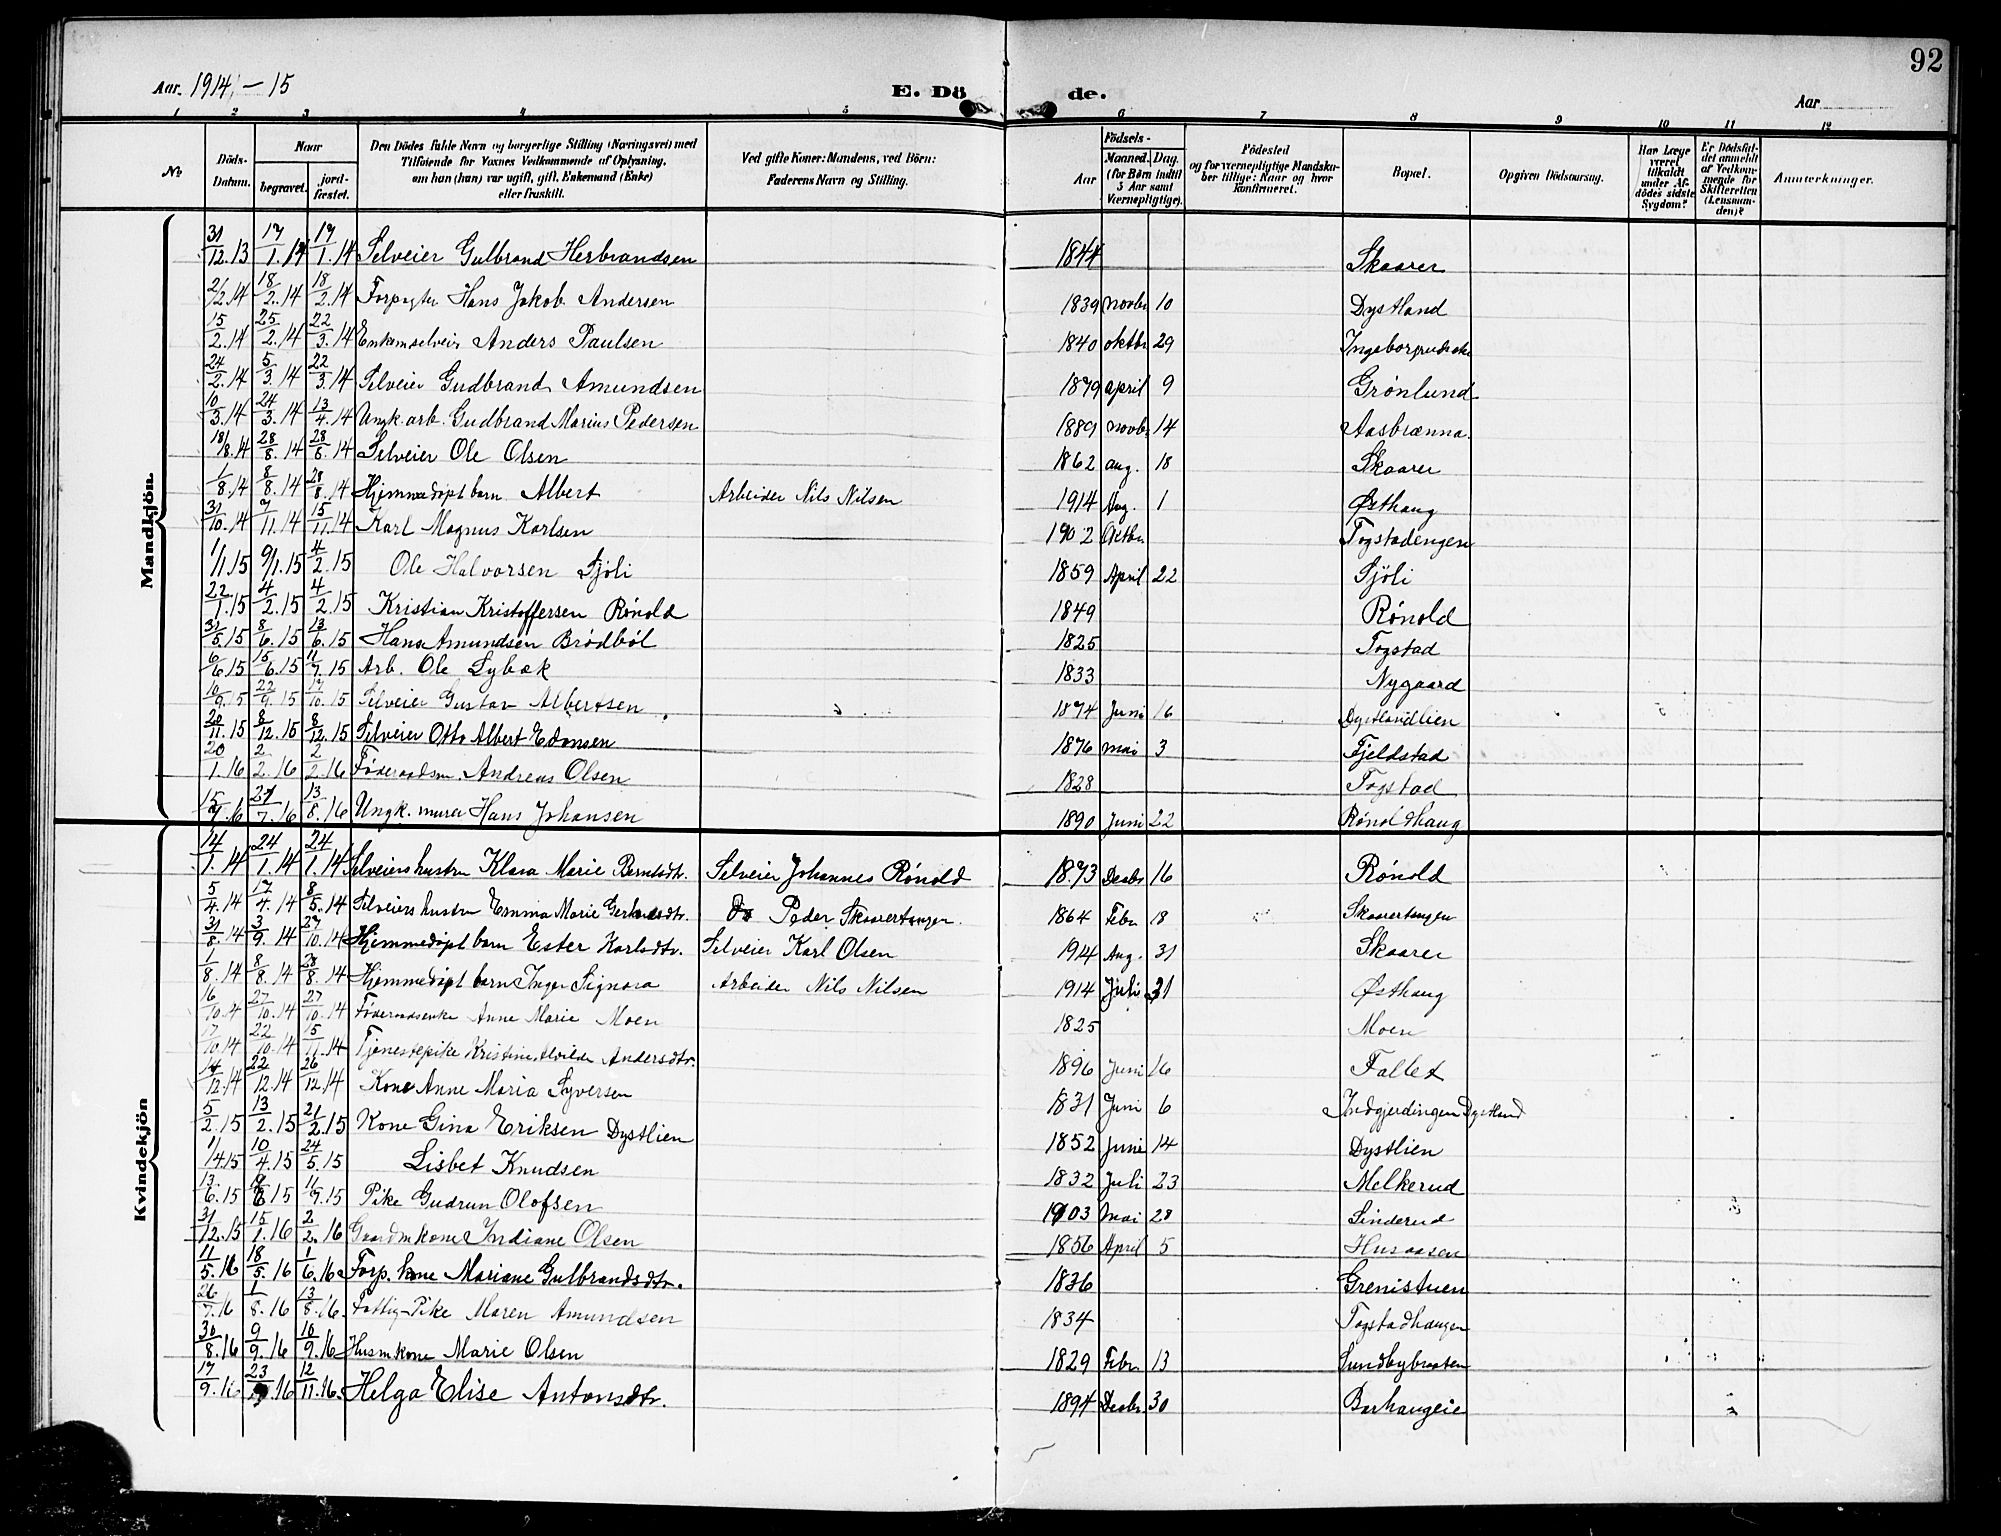 92
Aar. 1914 - 15
E. Dö de.
Aar
1 2 3 4 5 6 7 8 9 10 11 12
No
Döds-Datum.
Naar begravet. jordfæstet.
Den Dödes fulde Navn og borgerlige Stilling (Næringsvei) med Tilföiende for Voxnes Vedkommende af Oplysning, om han (hun) var ugift, gift, Enkemand (Enke) eller fraskilt.
Ved gifte Koner: Mandens, ved Börn: Faderens Navn og Stilling.
Födsels-
Aar Maaned. Dag. (for Börn indtil 3 Aar samt Værnepligtige).
Födested og for værnepligtige Mandskaber tillige: Naar og hvor Konfirmeret.
Bopæl.
Opgiven Dödsaarsag.
Har Læge været tilkaldt under Afdödes sidste Sygdom?
Er Dödsfaldet anmeldt af Vedkommende for Skifteretten (Lensmanden)?
Anmærkninger.
Mandkjön.
31/12.13 17/1.14 17/1.14 Selveier Gulbrand Herbrandsen 1844 Skaarer
2/2.14 18/2.14 18/2.14 Forpagter Hans Jakob Andersen 1839 novbr 10 Dystland
15/2.14 25/2.14 22/3.14 Enkem selveier Anders Paulsen 1840 oktbr 29
24/2.14 5/3.14 22/3.14 Selveier Gudbrand Amundsen 1879 april 9 Grønlund
10/3.14 24/3.14 13/4.14 Ungk. arb. Gudbrand Marius Pedersen 1889 novbr 14 Aasbrænna.
18/8.14 28/8.14 28/8.14 Selveier Ole Olsen 1862 aug. 18 Skaarer
1/8.14 8/8.14 28/8.14 Hjemmedøpt barn Albert Arbeider Nils Nilsen 1914 Aug. 1 Østhaug
31/10.14 7/11.14 15/11.14 Karl Magnus Karlsen 1902 Oktbr Togstadengen
1/1.15 9/1.15 4/2.15 Ole Halvorsen Sjöli 1859 April 22 Sjöli
22/1.15 4/2.15 4/2.15 Kristian Kristoffersen Rönold 1849 Rönold
31/5.15 8/6.15 13/6.15 Hans Amundsen Brödböl 1825 Togstad
6/6.15 15/6.15 11/7.15 Arb. Ole Lybæk 1833 Nygaard
10/9.15 22/9.15 17/10.15 Selveier Gustav Albertsen 1874 Juni 16 Dystlandlien
20/11.15 8/12.15 8/12.15 Selveier Otto Albert Edvinsen 1876 mai 3 Fjeldstad
20/1.16 2/2.16 2/2.16 Föderaadsm. Andreas Olsen 1828 Togstad
15/7.16 27/7.16 13/8.16 Ungk. murer Hans Johansen 1890 Juni 22 Rønoldhaug
Kvindekjön
14/1.14 24/1.14 24/1.14 Selveiers hustru Klara Marie Berntsdtr. Selveier Johannes Rönold 1873 Decbr 16 Rönold
5/4.14 17/4.14 8/5.14 Selveiers hustru Emma Marie Do Peder Skaarertangen. 1864 Febr 18 Skaarertangen
31/8.14 3/9.14 27/10.14 Hjemmedöpt barn Ester Karlsdtr. Selveier Karl Olsen 1914 Aug. 31 Skaarer
1/8.14 8/8.14 28/8.14 Hjemmedöpt barn Inger Signora Arbeider Nils Nilsen 1914 Juli 31 Østhaug
16/10.14 27/10.14 27/10.14 Föderaadsenke Anne Marie Moen 1825 Moen
17/10.14 22/10.14 15/11.14 Tjenestepike Kristine Alvilde Andersdtr. 1896 Juni 16 Fallet
14/12.14 22/12.14 26/12.14 Kone Anne Maria Syversen 1831 Juni 6 Indgjerdingen Dystland
5/2.15 13/2.15 21/2.15 Kone Gina Eriksen Dystlien 1852 Juni 14 Dystlien
1/4.15 10/4.15 24/5.15 Lisbet Knudsen 1832 Juli 23 Melkerud
13/6.15 15 11/7.15 Pike Gudrun Olofsen 1903 Mai 28 Linderud
31/12.15 15/1.16 2/2.16 Gaardmkone Indiane Olsen 1856 April 5 Husaasen
11/5.16 18/5.16 1/6.16 Forp. kone Mariane Gulbrandsdtr. 1836 Grenistuen
26/7.16 1/8.16 13/8.16. Fattig-Pike Maren Amundsen 1834 Togstadhaugen
30/8.16 9/9.16 10/9.16 Husmkone Marie Olsen 1829 Febr. 13 Sundbybraaten
17/9.16 23 16 12/11.16. Helga Elise Antonsdtr. 1894 Decbr. 30 Berhaugeie